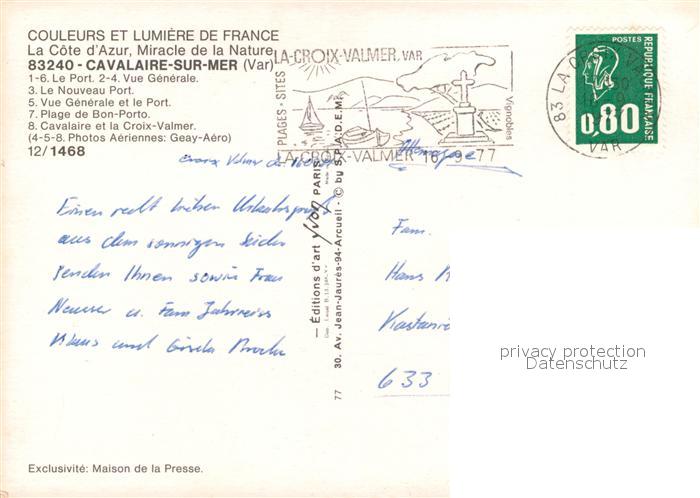 COULEURS ET LUMIÈRE DE FRANCE
La Côte d'Azur, Miracle de la Nature
83240 - CAVALAIRE-SUR-MER (Var)
1-6. Le Port. 2-4. Vue Générale.
3. Le Nouveau Port.
5. Vue Générale et le Port.
7. Plage de Bon-Porto.
8. Cavalaire et la Croix-Valmer.
(4-5-8. Photos Aériennes: Geay-Aéro)
12/1468
LA-CROIX-VALMER, VAR
PLAGES - SITES
Vignobles
LA-CROIX-VALMER 16-9-77
POSTES
REPUBLIQUE FRANÇAISE
0,80
83 LA CR
VAR
Croix Valmer
Einen recht lieben Urlaubsgruß
aus dem sonnigen Süden
senden Ihnen sowie Frau
u. Fam.
Klaus und Gisela
— Éditions d'art yvon PARIS
30. Av. Jean-Jaurès-94-Arcueil - © by S.P.A.D.E.M.
77
Fam.
Hans
Kastanie
633
privacy protection
Datenschutz
Exclusivité: Maison de la Presse.